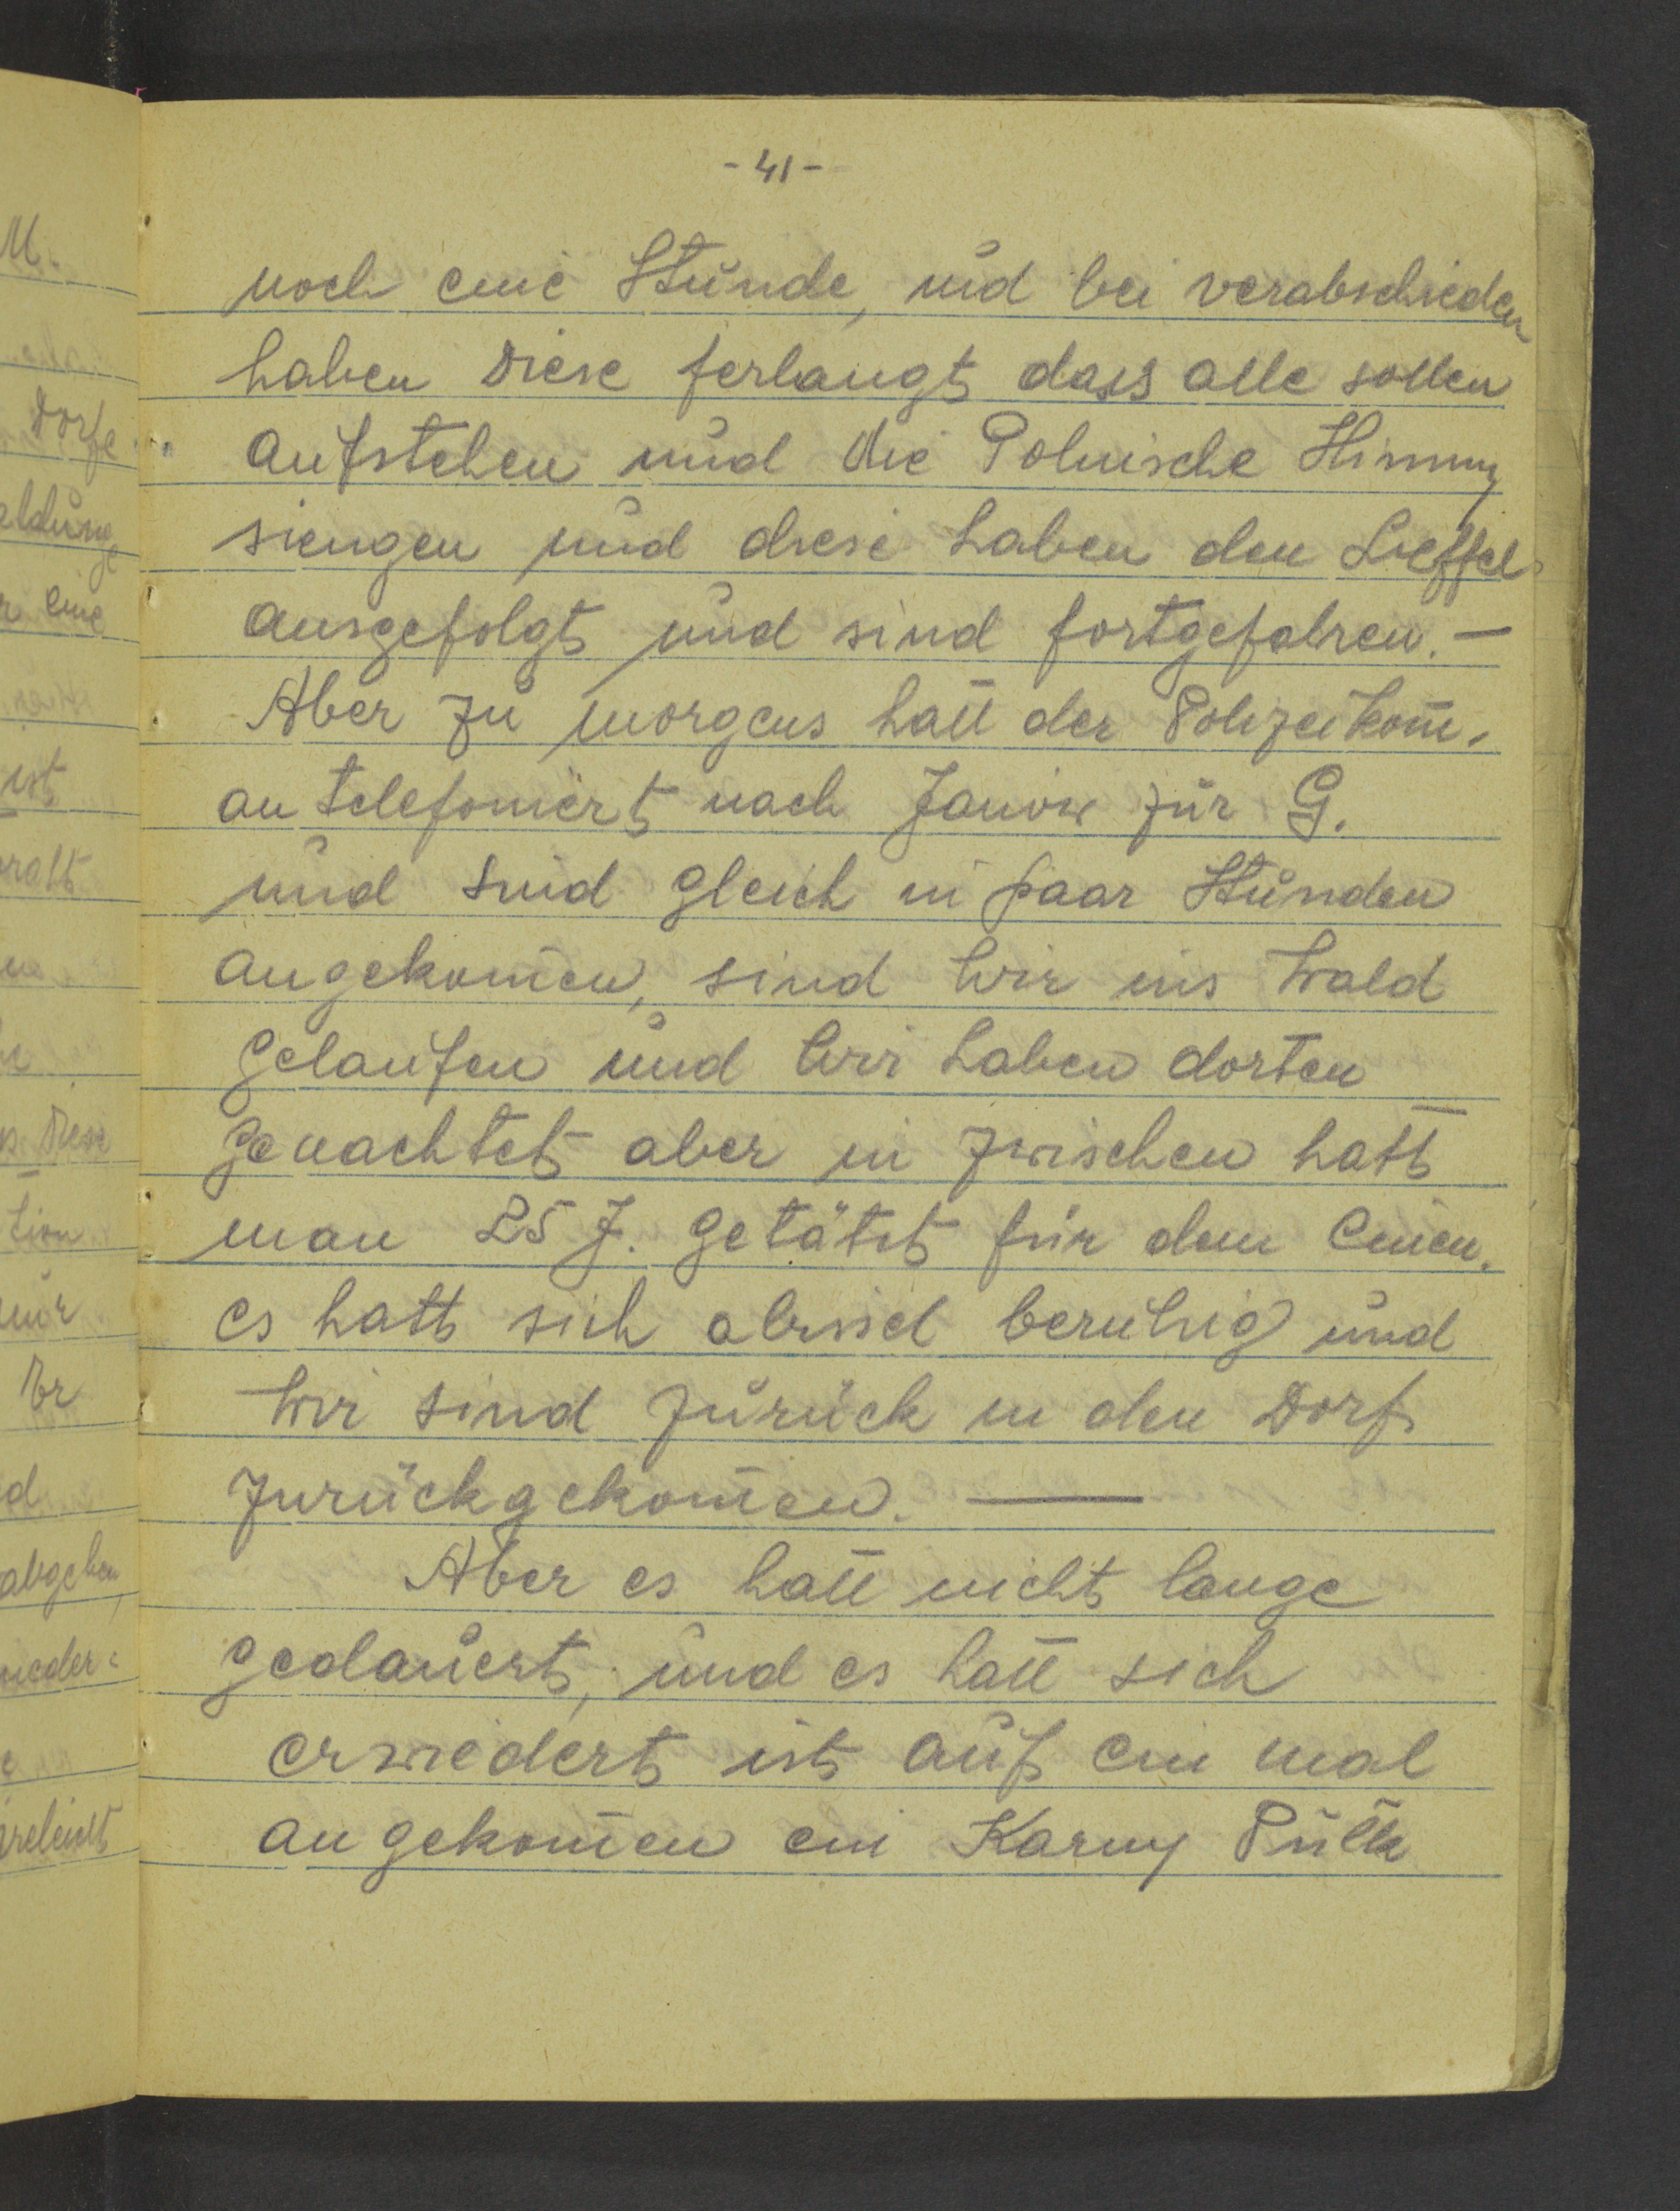 M.
- 41 -
noch eine Stunde, und bei verabschieden
haben Diese ferlangt dass alle sollen
Dorfe
aufstehen und die Polnische Himmy
siengen und diese haben den Lieffel
eine
ausgefolgt und sind fortgefahren. —
Aber zu morgens hatt der Polizeikom̄.
ist
an telefoniert nach Janow zur G.
und sind gleich in paar Stunden
angekom̄en, sind wir ins Wald
gelaufen und wir haben dorten
Diese
genachtet aber in zwischen hatt
tion
man 25 J. getätet für dem Einen.
es hatt sich abissel beruhig und
Er
wir sind zurück in den Dorf
zurückgekom̄en. —
abgeben,
Aber es hatt nicht lange
wieder=
gedauert, und es hatt sich
erwiedert ist auf ein mal
angekom̄en ein Karny Pulk